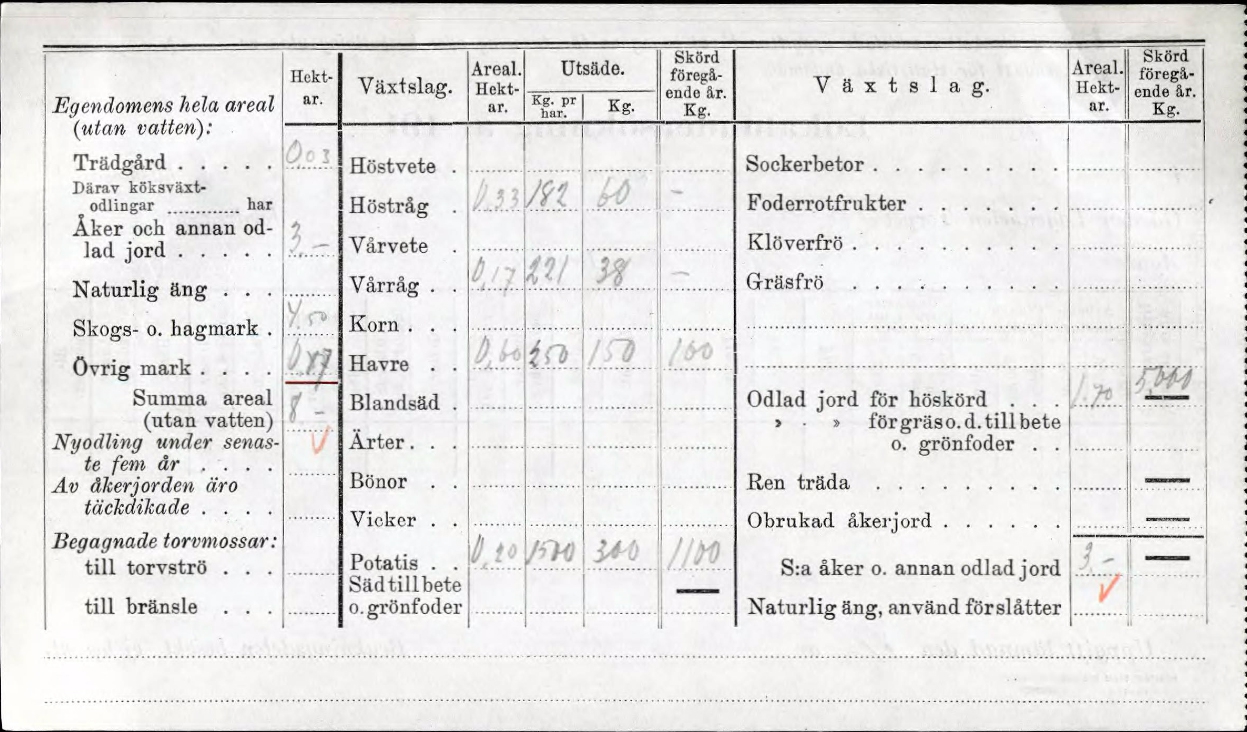 Egendomens hela areal
(utan vatten):
Hekt-
ar.
Trädgård . . . . . 0,03
Därav köksväxt-
odlingar har
Åker och annan od-
lad jord . . . . . 3,-
Naturlig äng . . .
Skogs- o. hagmark . 4,50
Övrig mark . . . . 0,47
Summa areal
(utan vatten) 8,-
Nyodling under senas-
te fem år . . . .
Av åkerjorden äro
täckdikade . . . .
Begagnade torvmossar:
till torvströ . . .
till bränsle . . .
Växtslag.
Areal.
Hekt-
ar.
Utsäde.
Kg. pr
har.
Kg.
Skörd
föregå-
ende år.
Kg.
Höstvete .
Höstråg . 0,33 182 60 -
Vårvete .
Vårråg . . 0,17 221 38 -
Korn . . .
Havre . . 0,60 250 150 100
Blandsäd .
Ärter . . .
Bönor . .
Vicker . .
Potatis . . 0,20 1500 300 1100
Säd till bete
o. grönfoder —
Växtslag.
Areal.
Hekt-
ar.
Skörd
föregå-
ende år.
Kg.
Sockerbetor . . . . . . . .
Foderrotfrukter . . . . . .
Klöverfrö . . . . . . . . .
Gräsfrö . . . . . . . . .
Odlad jord för höskörd . . . 1,70 5,000
» » för gräs o. d. till bete
o. grönfoder . .
Ren träda . . . . . . . . —
Obrukad åkerjord . . . . . . —
S:a åker o. annan odlad jord 3,- —
Naturlig äng, använd för slåtter